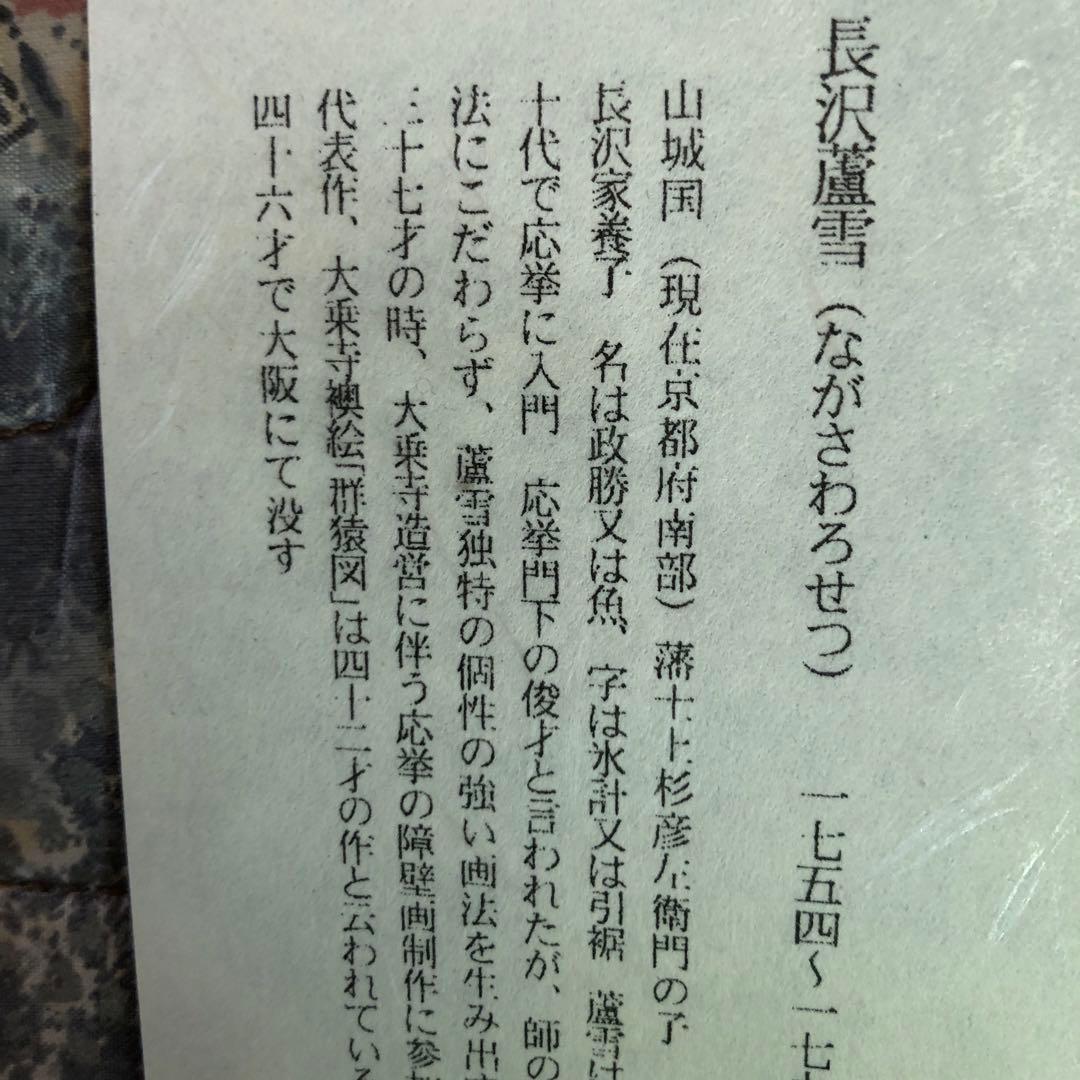 長沢蘆雪（ながさわろせつ）　一七五四～一七
山城国（現在京都府南部）藩士上杉彦左衛門の子
長沢家養子　名は政勝又は魚、字は氷計又は引裾　蘆雪は
十代で応挙に入門　応挙門下の俊才と言われたが、師の
法にこだわらず、蘆雪独特の個性の強い画法を生み出す
三十七才の時、大乗寺造営に伴う応挙の障壁画制作に参加
代表作、大乗寺襖絵「群猿図」は四十二才の作と云われている
四十六才で大阪にて没す